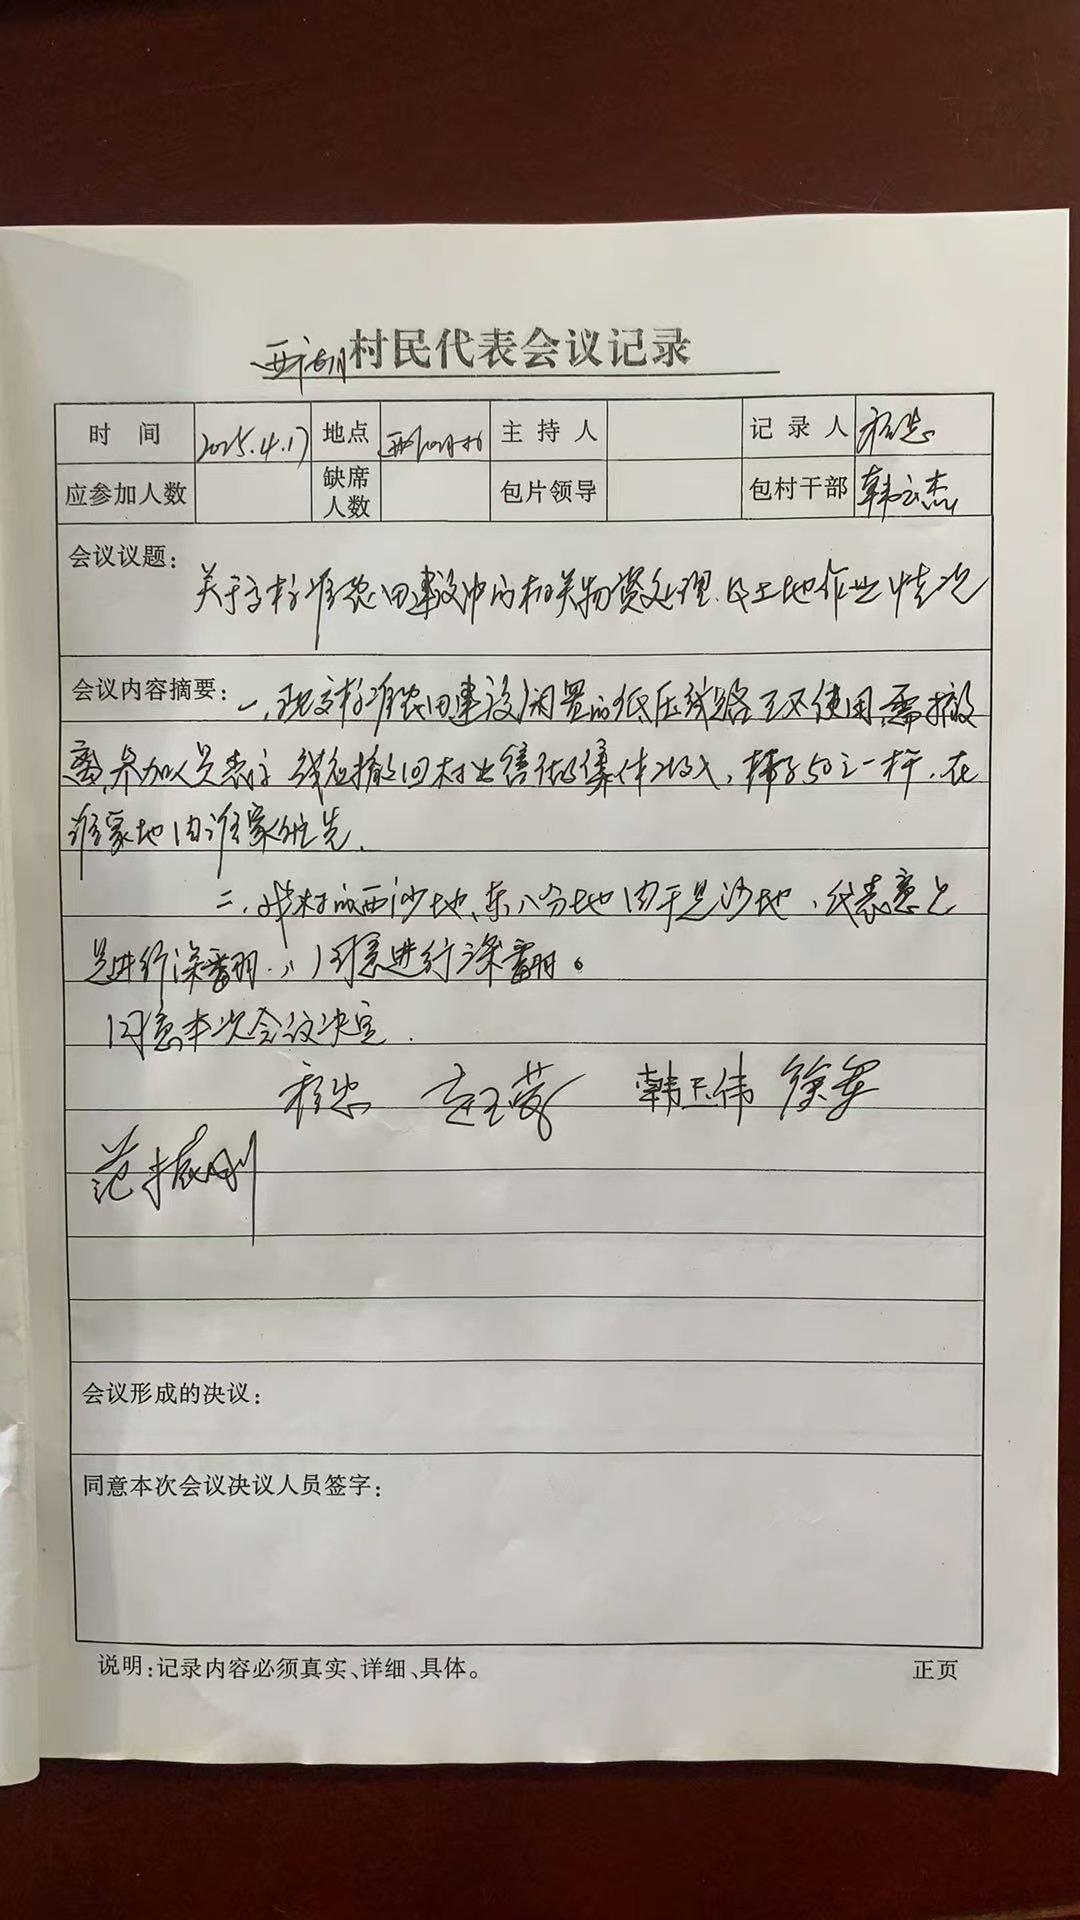 村民代表会议记录
时 间 2025.4.17 地点 主 持 人 记 录 人
应参加人数 缺席人数 包片领导 包村干部 韩云杰
会议议题:
关于高标准农田建设中的相关物资处理及土地作业情况
会议内容摘要: 一、现高标准农田建设闲置的低压线路已不使用,需撤
离,参加人员表示 线应撤回村出售做集体收入,棒子50元一杆,在
谁家地由谁家优先.
二、我村的西沙地、东八分地由于是沙地,代表意见
是进行深翻,同意进行深翻。
同意本次会议决定.
韩玉伟 徐军
范振刚
会议形成的决议:
同意本次会议决议人员签字:
说明:记录内容必须真实、详细、具体。 正页